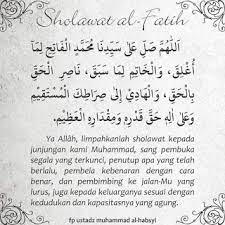 Sholawat al-Fatih
اَللّٰهُمَّ صَلِّ عَلَى سَيِّدِنَا مُحَمَّدٍ الْفَاتِحِ لِمَا
أُغْلِقَ، وَالْخَاتِمِ لِمَا سَبَقَ، نَاصِرِ الْحَقِّ
بِالْحَقِّ، وَالْهَادِي إِلَى صِرَاطِكَ الْمُسْتَقِيْمِ
وَعَلَى اٰلِهِ حَقَّ قَدْرِهِ وَمِقْدَارِهِ الْعَظِيْمِ.
Ya Allâh, limpahkanlah sholawat kepada
junjungan kami Muhammad, sang pembuka
segala yang terkunci, penutup apa yang telah
berlalu, pembela kebenaran dengan cara
benar, dan pembimbing ke jalan-Mu yang
lurus, juga kepada keluarganya sesuai dengan
kedudukan dan kapasitasnya yang agung.
fp ustadz muhammad al-habsyi